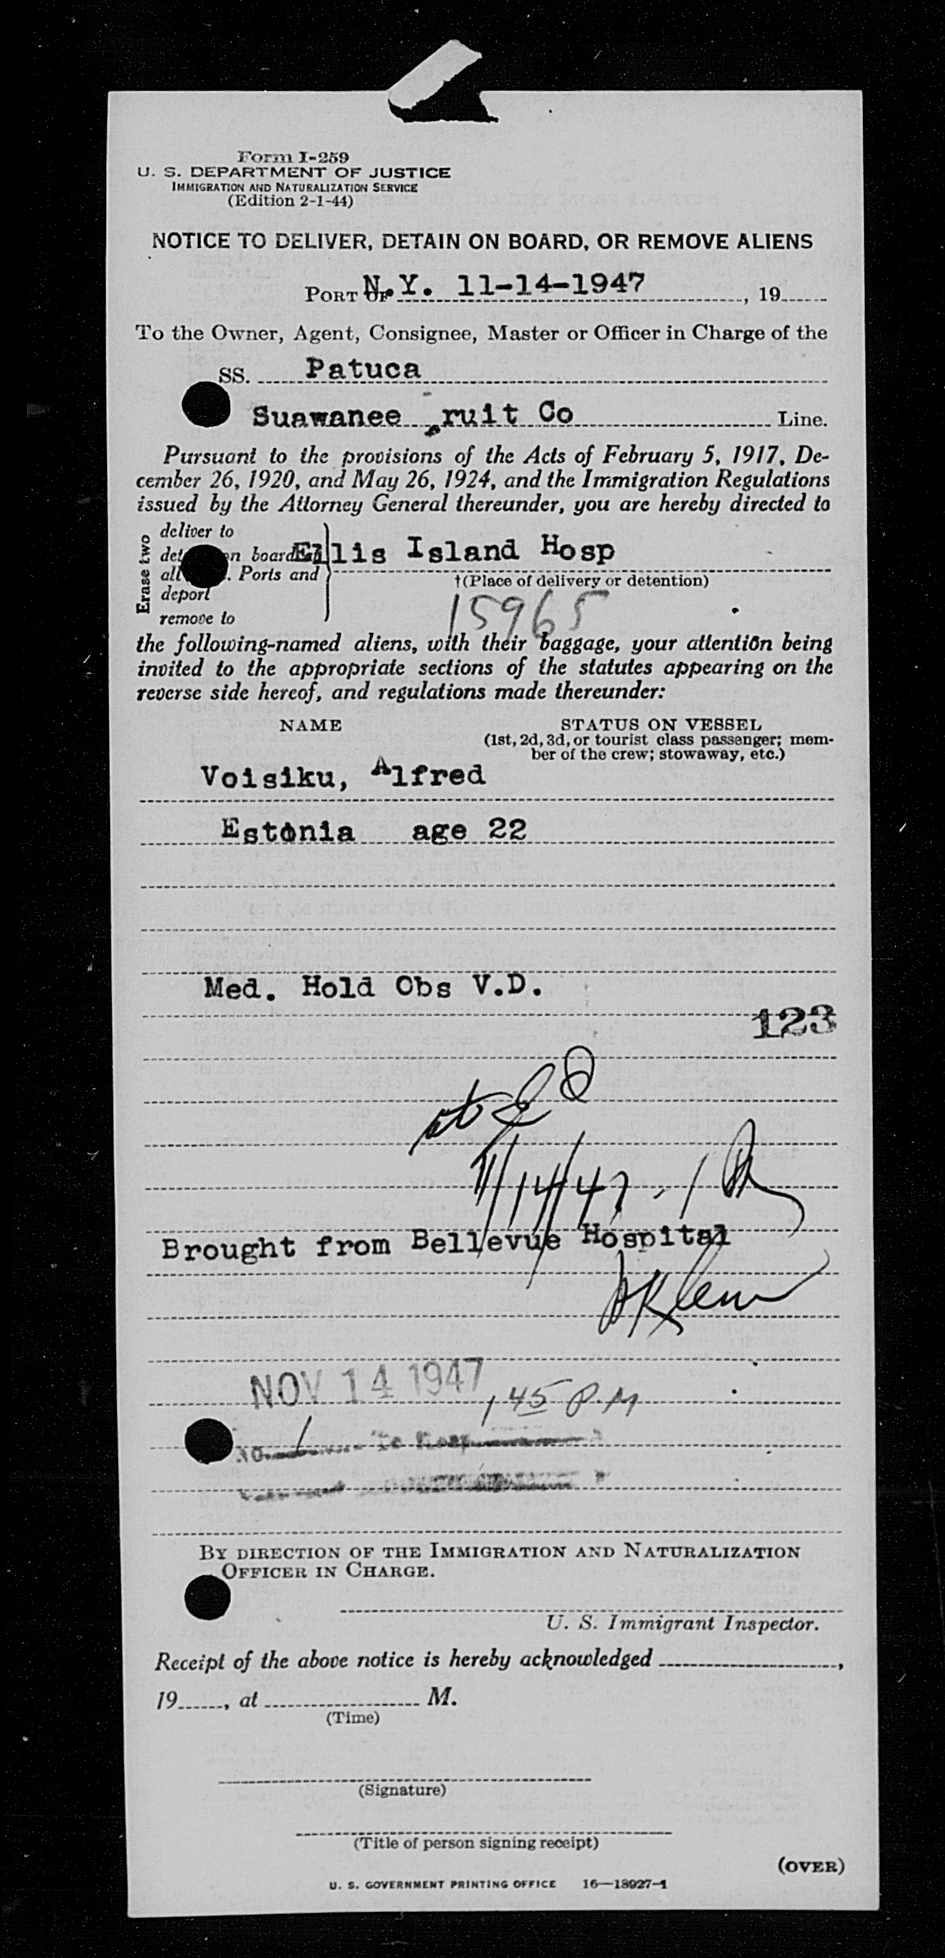 Form I-259
U. S. DEPARTMENT OF JUSTICE
IMMIGRATION AND NATURALIZATION SERVICE
(Edition 2-1-44)
NOTICE TO DELIVER, DETAIN ON BOARD, OR REMOVE ALIENS
PORT OF N.Y. 11-14-1947, 19
To the Owner, Agent, Consignee, Master or Officer in Charge of the
SS. Patuca
Suawanee ruit Co Line.
Pursuant to the provisions of the Acts of February 5, 1917, De-
cember 26, 1920, and May 26, 1924, and the Immigration Regulations
issued by the Attorney General thereunder, you are hereby directed to
Erase two
deliver to
on board
Ellis Island Hosp
all . Ports and
†(Place of delivery or detention)
deport
15965
remove to
the following-named aliens, with their baggage, your attention being
invited to the appropriate sections of the statutes appearing on the
reverse side hereof, and regulations made thereunder:
NAME STATUS ON VESSEL
(1st, 2d, 3d, or tourist class passenger; mem-
ber of the crew; stowaway, etc.)
Voisiku, Alfred
Estonia age 22
Med. Hold Obs V.D.
123
11/14/47 - 1
Brought from Bellevue Hospital
NOV 14 1947
1 45 P.M
To Hosp
BY DIRECTION OF THE IMMIGRATION AND NATURALIZATION
OFFICER IN CHARGE.
U. S. Immigrant Inspector.
Receipt of the above notice is hereby acknowledged ,
19 , at M.
(Time)
(Signature)
(Title of person signing receipt)
(OVER)
U. S. GOVERNMENT PRINTING OFFICE 16—18927-1